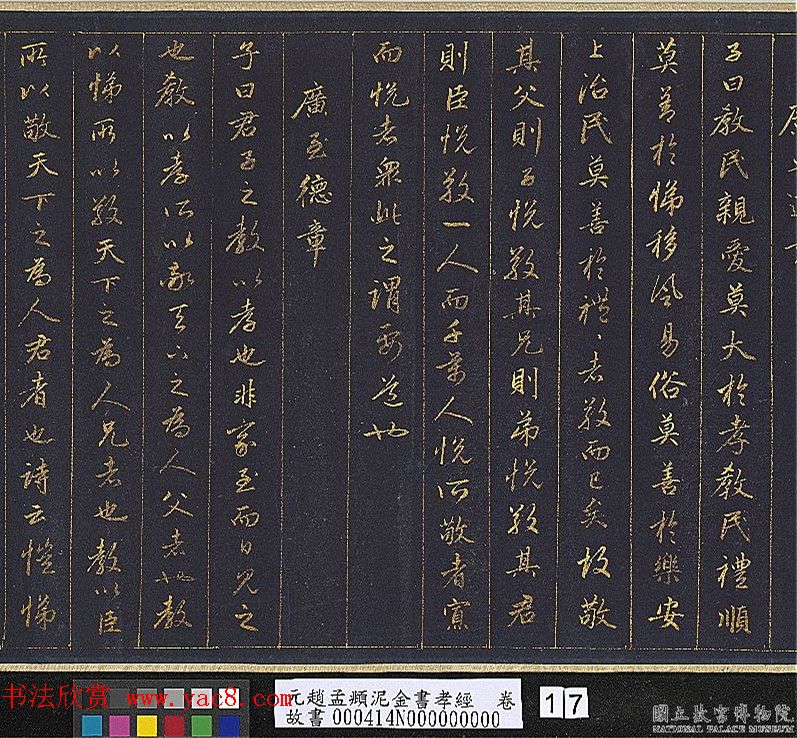 子曰教民親愛莫大於孝教民禮順
莫善於悌移風易俗莫善於樂安
上治民莫善於禮〻者敬而已矣故敬
其父則子悅敬其兄則弟悅敬其君
則臣悅敬一人而千萬人悅所敬者寡
而悅者衆此之謂要道也
廣至德章
子曰君子之教以孝也非家至而日見之
也教以孝所以敬天下之為人父者也教
以悌所以敬天下之為人兄者也教以臣
所以敬天下之為人君者也詩云愷悌
书法欣赏 www.yac8.com
元趙孟頫泥金書孝經 卷
故書000414N000000000
17
國立故宮博物院
NATIONAL PALACE MUSEUM